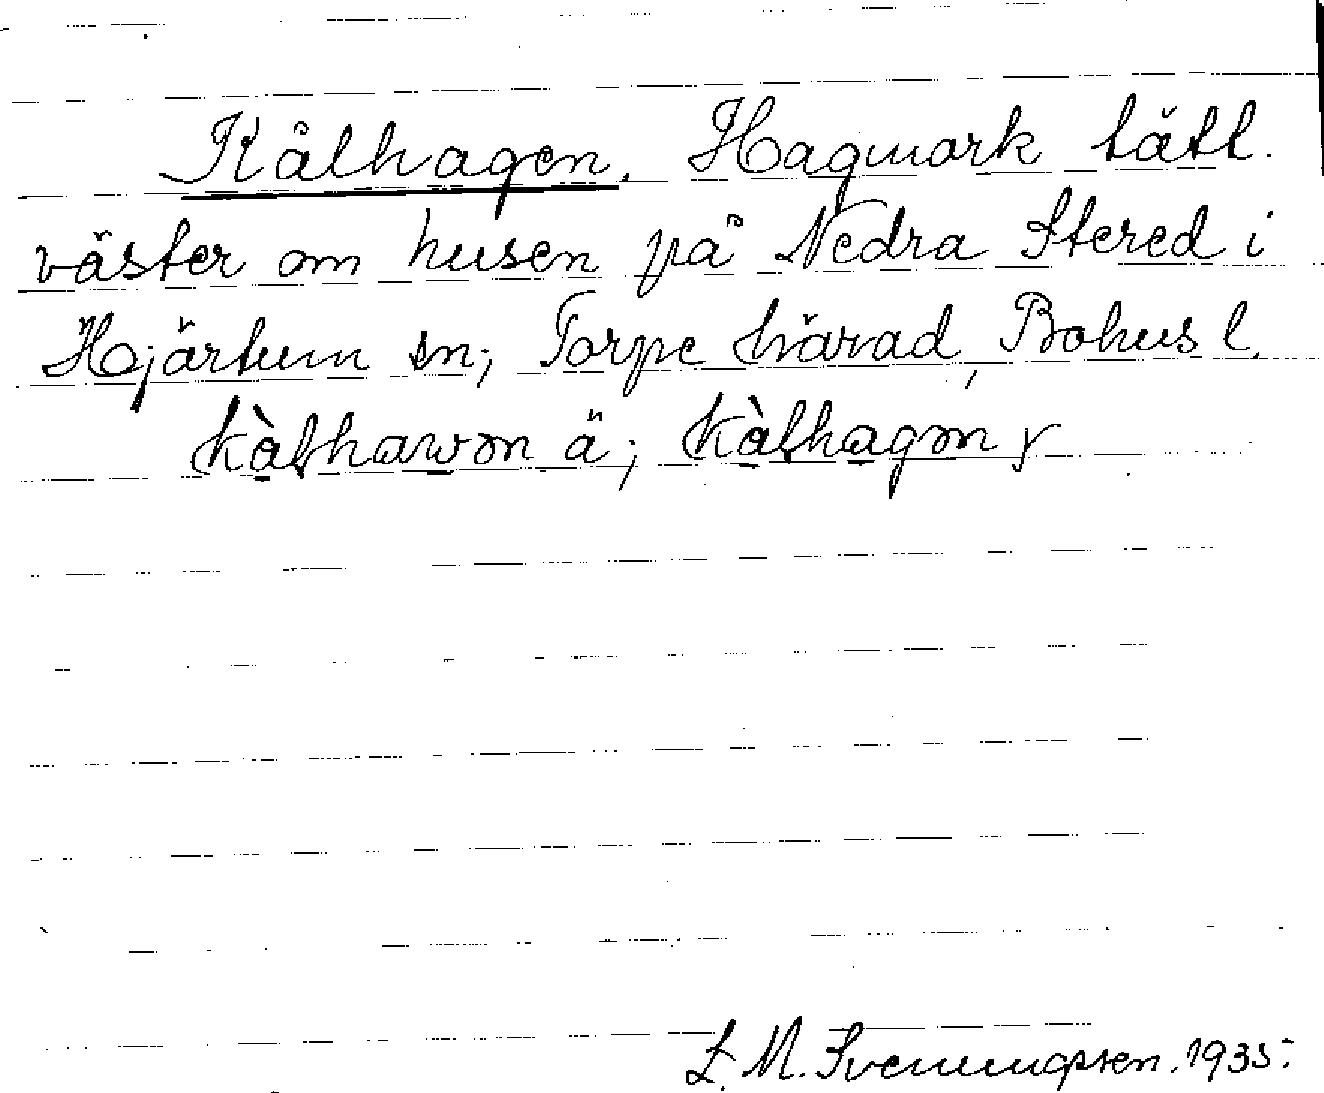 Kålhagen. Hagmark tätt
väster om husen på Nedra Stered i
Hjärtum sn, Torpe härad, Bohusl.
kàlhawon ä; kàlhagon y
L. M. Svenungsson. 1935.